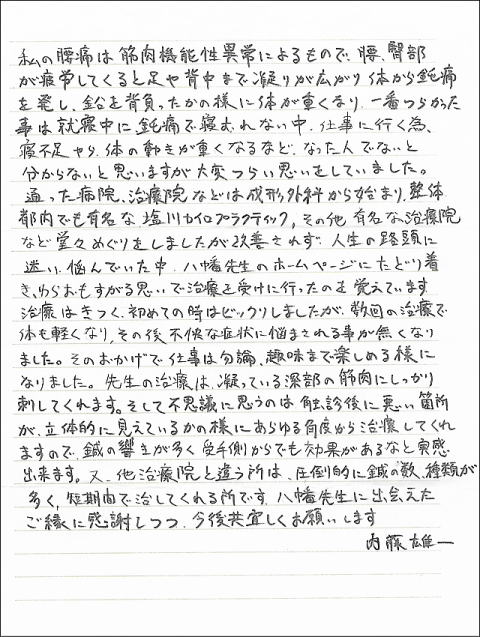 私の腰痛は筋肉機能性異常によるもので、腰、臀部
が疲労してくると足や背中まで凝りが広がり体から鈍痛
を発し、鉛を背負ったかの様に体が重くなり、一番つらかった
事は就寝中に鈍痛で寝むれない中、仕事に行く為、
寝不足やら、体の動きが重くなるなど、なった人でないと
分からないと思いますが大変つらい思いをしていました。
通った病院、治療院などは成形外科から始まり、整体
都内でも有名な塩川カイロプラクティック、その他有名な治療院
など堂々めぐりをしましたが改善されず、人生の路頭に
迷い、悩んでいた中、八幡先生のホームページにたどり着
き、わらおもすがる思いで治療を受けに行ったのを覚えています
治療はきつく、初めての時はビックリしましたが、数回の治療で
体も軽くなり、その後不快な症状に悩まされる事が無くなり
ました。そのおかげで仕事は勿論、趣味まで楽しめる様に
なりました。先生の治療は、凝っている深部の筋肉にしっかり
刺してくれます。そして不思議に思うのは触診後に悪い箇所
が、立体的に見えているかの様にあらゆる角度から治療してくれ
ますので、鍼の響きが多く受手側からでも効果があるなと実感
出来ます。又、他治療院と違う所は、圧倒的に鍼の数、種類が
多く、短期間で治してくれる所です。八幡先生に出会えた
ご縁に感謝しつつ、今後共宜しくお願いします
内藤雄一